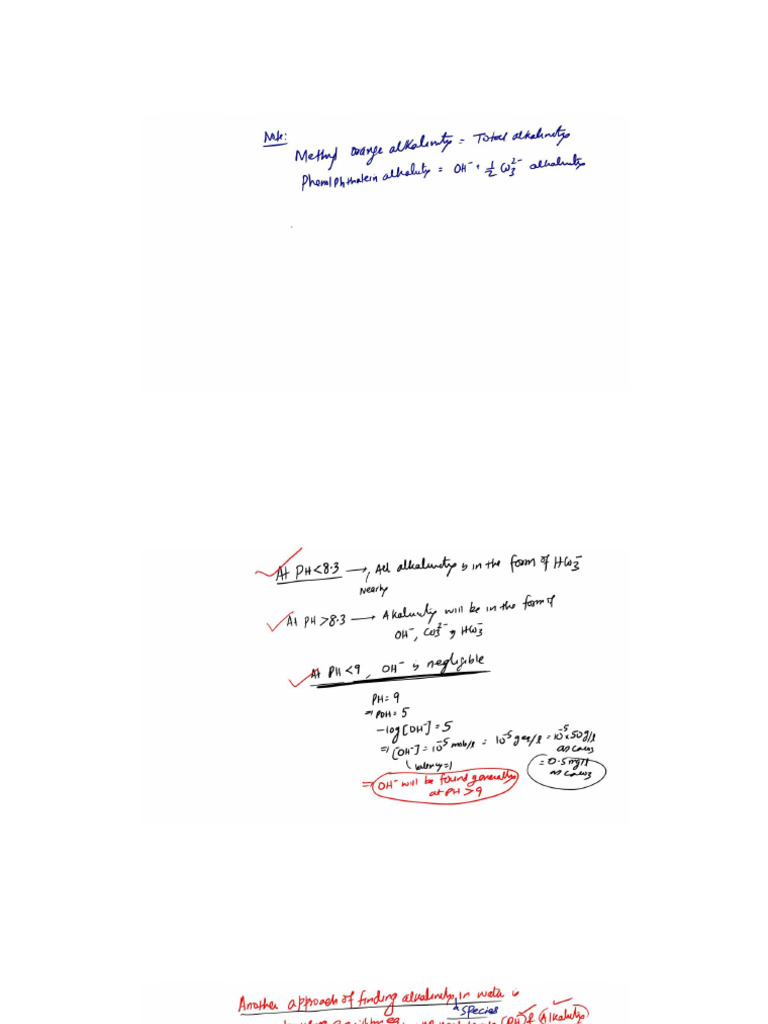 Note:
Methyl orange alkalinity = Total alkalinity
Phenolphthalein alkalinity = OH⁻ + 1/2 CO₃²⁻ alkalinity
At PH<8.3 → All alkalinity is in the form of HCO₃⁻
Nearly
At PH >8.3 → Alkalinity will be in the form of
OH⁻, CO₃²⁻ & HCO₃⁻
At PH <9, OH⁻ is negligible
PH = 9
⇒ POH = 5
-log[OH⁻] = 5
⇒ [OH⁻] = 10⁻⁵ mol/l = 10⁻⁵ geq/l = 10⁻⁵×50g/l
as CaCO3
valency=1
= 0.5 mg/l
as CaCO3
⇒ OH⁻ will be found generally
at PH > 9
Another approach of finding alkalinity in water
species
(PH) & (Alkalinity)